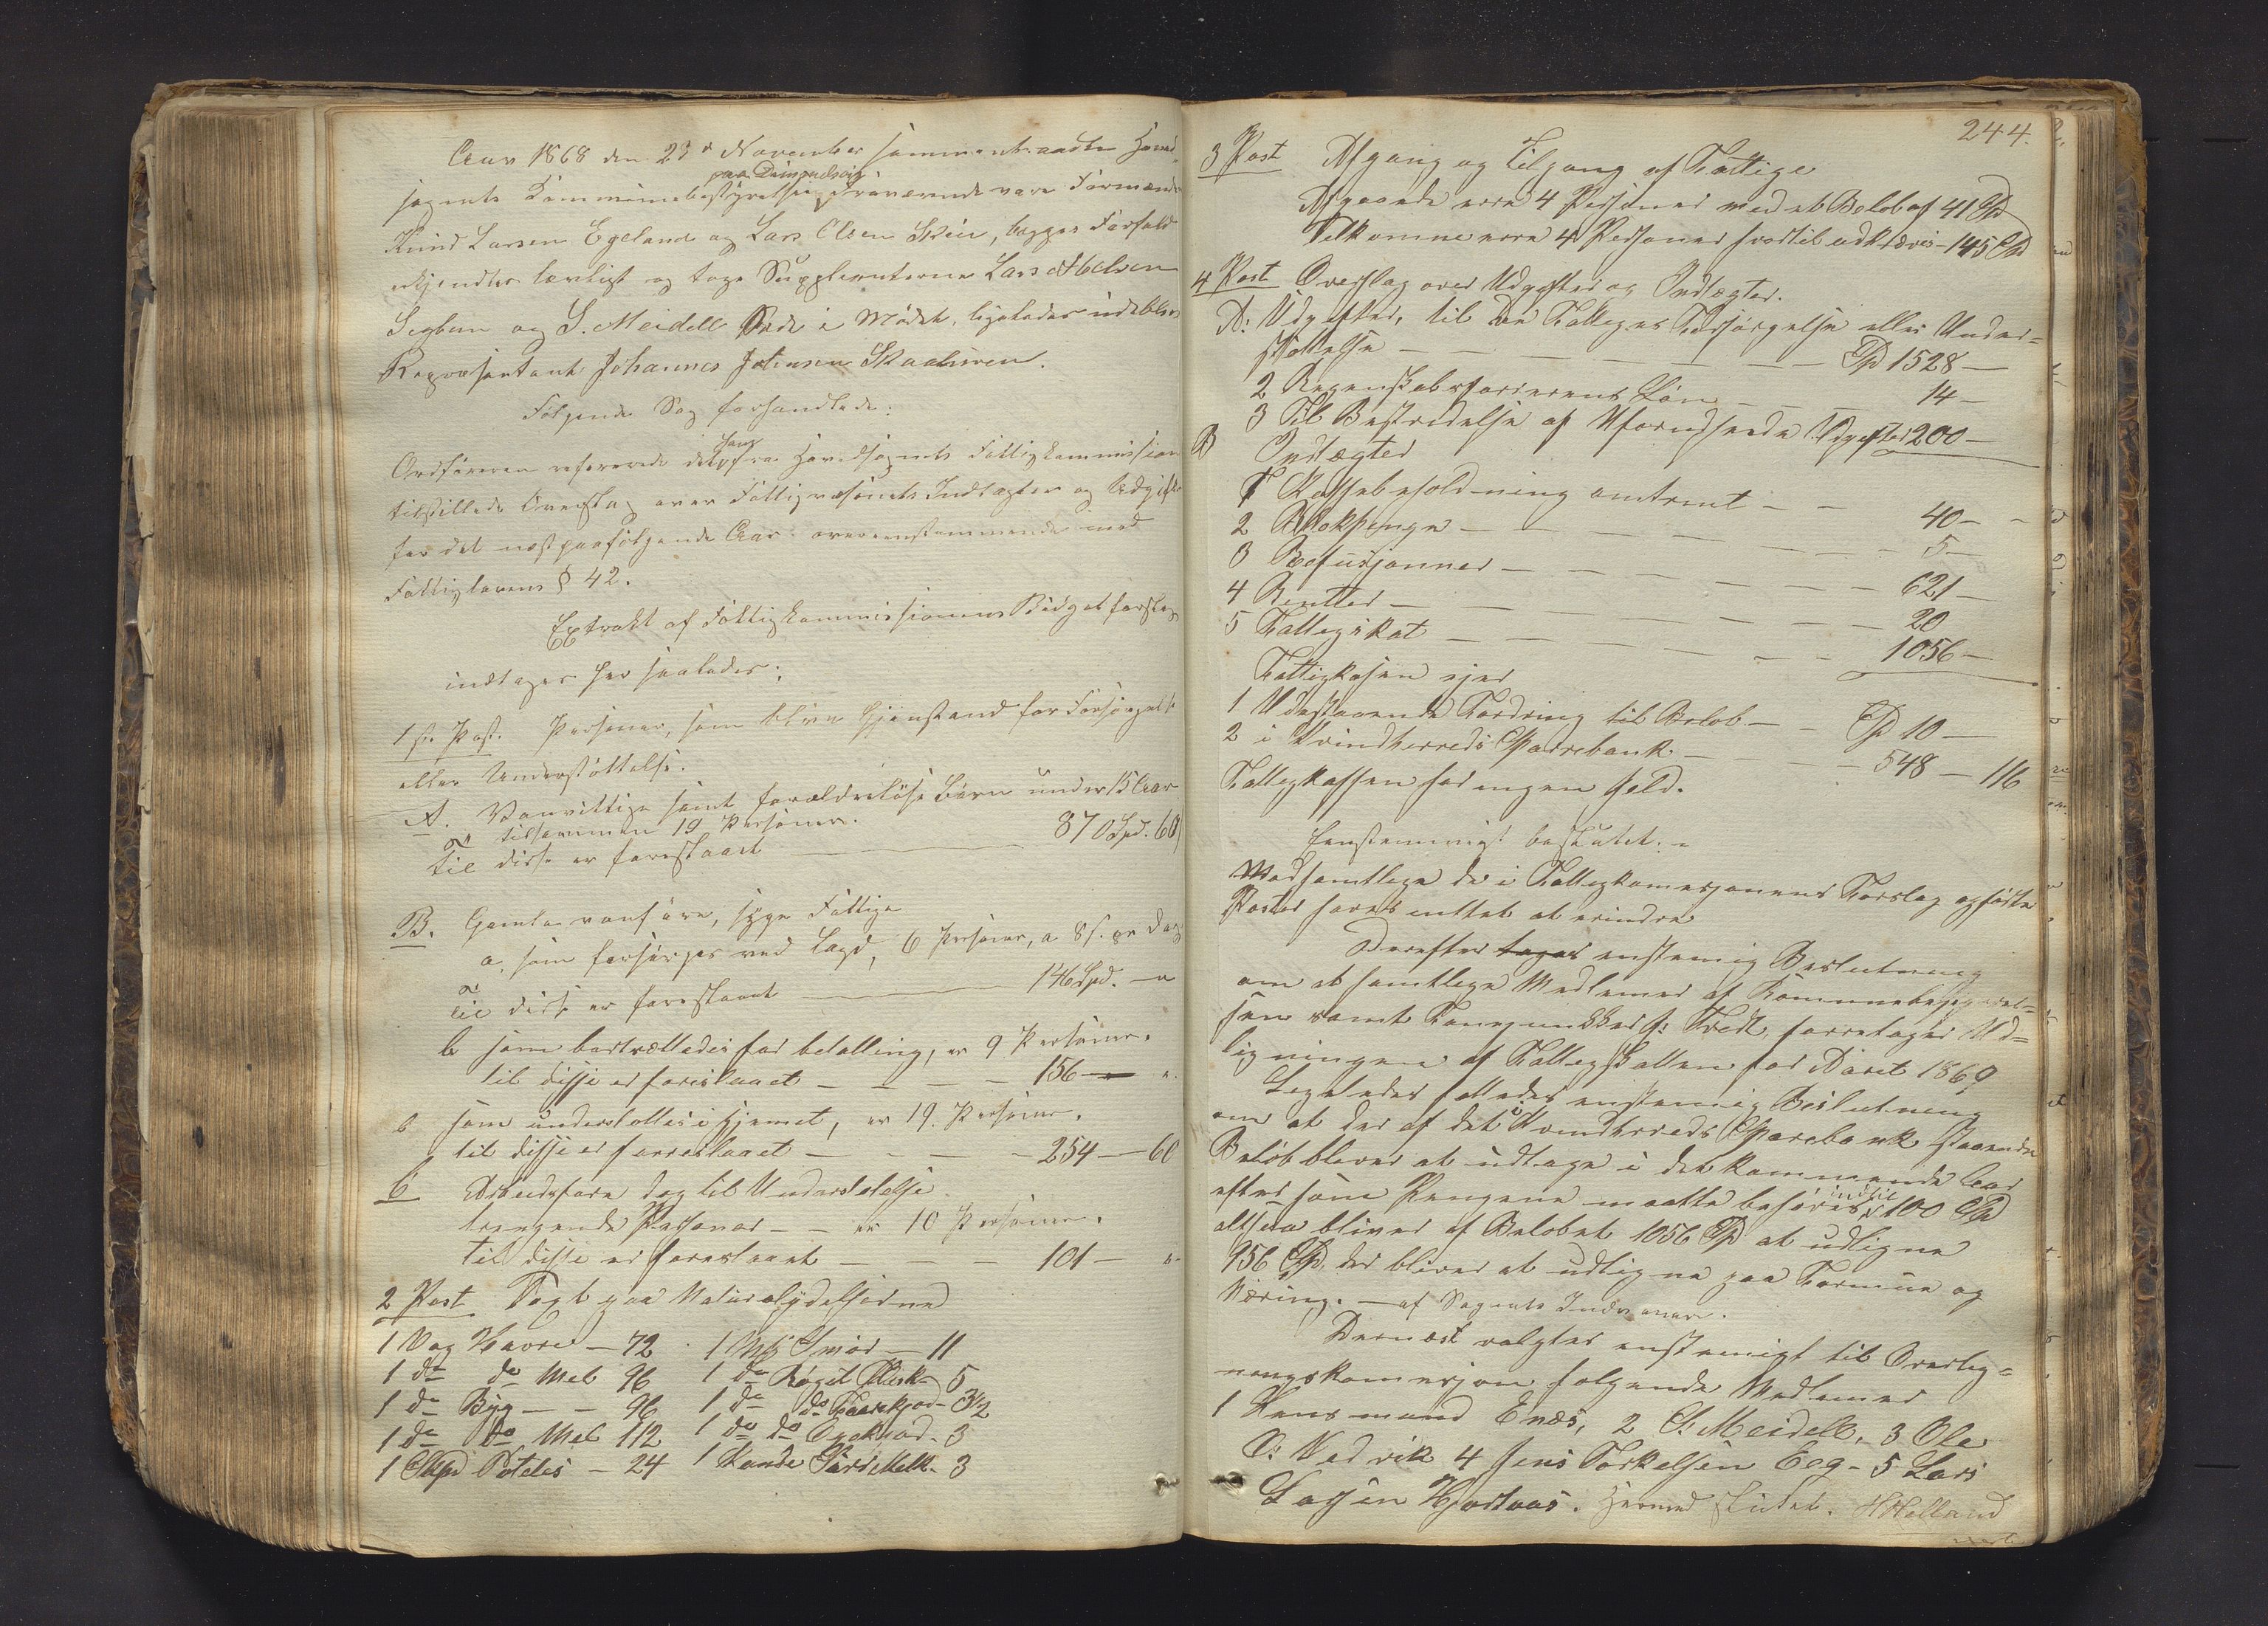 Aar 1868 den 23de November sammentraadte Hoved-
paa Dimmelsvig
sognets Kommunebestyrelse, fraværende vare Formænd
Knud Larsen Egeland og Lars Olsen Skeie, begges Forfald
ækjendtes lovligt og toge Suplenterne Lars Abelsen
Segbun og S. Meidell Sæde i Mødet, ligeledes udeblev
Repræsentant Johannes Johnsen Skaaluren.
Følgende Sag forhandlede:
Ordføreren refererede det ham fra Hovedsognets Fattigkommission
tilstillede Overslag over Fattigvæsenets Indtægter og Udgifter
for det næstpaafølgende Aar, overensstemmende med
Fattiglovens § 42.
Extrakt af Fattigkommissionens Budgetforslag
indtages her saaledes:
1ste Post. Personer, som blive Gjenstand for Forsørgelse
eller Understøttelse.
A. Vanvittige samt forældreløse Børn under 15 Aar
tilsammen 19 Personer.
Til disse er foreslaaet 870 Spd. 60
B. Gamle vanføre, syge Fattige
a, som forsørges ved Lægd, 6 Personer, a 8 s. pr Dag
til disse er foreslaaet 146 Spd. — "
b som bortsættedes for betalling, er 9 Personer.
til disse er foreslaaet — — — 156 — ".
c som understottes i Hjemet, er 19. Personer.
til disse er forreslaaet — — — 254 — 60
C Arbeidsføre dog til Understøtelse
trengende Personer — — er 10 Personer.
Til disse er foreslaaet — — — 101 — "
2 Post Taxt paa Naturalydelserne
1 Vog Havre — 72 1 Mk Smør — 11
1 do do Mel 96 1 do Røget Flesk — 5
1 do Byg — — 96 1 do do Faarekjød — 3½
1 do do Mel 112 1 do do Oxekjød — 3
1 Skpd Poteles — 24 1 Kande Suur Melk — 3
244.
3 Post Afgang og Tilgang af Fattige
Afgaaede ere 4 Personer med et Beløb af 41 Spd
Tilkomne ere 4 Personer hvortil udkræves — 145 Spd
4 Post Overslag over Udgifter og Indtægter.
A: Udgifter, til de Fattiges Forsørgelse eller Under=
støttelse — — — — — Spd 1528 —
2 Regenskabsførerens Løn — — — 14 —
3 Til Bestridelse af Uforudseede Udgifter 200 —
B Indtægter
1 Kassebeholdning omtrent — — 40 — —
2 Blokpenge — — — — — 5 —
3 Refusjoner — — — — — 621 —
4 Rentter — — — — — 20
5 Fattigskat — — — — — 1056 —
Fattigkasen ejer
1 Udestaaende Fordring til Beløb — — Spd 10 —
2 i Kvindherreds Sparrebank — — — 548 — 116
Fattigkassen har ingen Gjeld.
Eenstemmigt besluttet: "
Mod samtlige de i Fattigkomisjonens Forslag opførte
Poster haves inttet at erindre
Derefter toges enstemig Beslutning
om at samtlige Medlemer af Komunebestyrel=
sen samt Kirkesanger J: Tvedt, forretager Ud=
ligningen af Fattigskatten for Aaret 1869
Ligeledes fattedes enstemig Beslutning
om at der af det i Kvindherreds Sparebank staaende
Beløb bliver at udtage i det kommende Aar
efter som Pengene maatte behøves indtil 100 Spd
altsaa bliver af Beløbet 1056 Spd at udligne
956 Spd der bliver at udligne paa Formue og
Næring. — af Sognets Indvaanere.
Dernæst valgtes enstemigt til Overlig=
ningskomisjon følgende Medlemer
1 Lensmand Enæs, 2 S: Meidell, 3 Ole
O: Nedvik 4 Jens Torkelsen Eeg — 5 Lars
Larsen Hjortaas. Hermed sluttet. HHelland